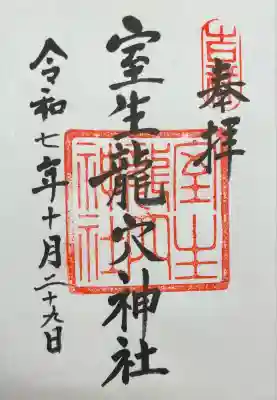 奉拝
室生龍穴神社
令和七年十月二十九日
室生龍穴神社